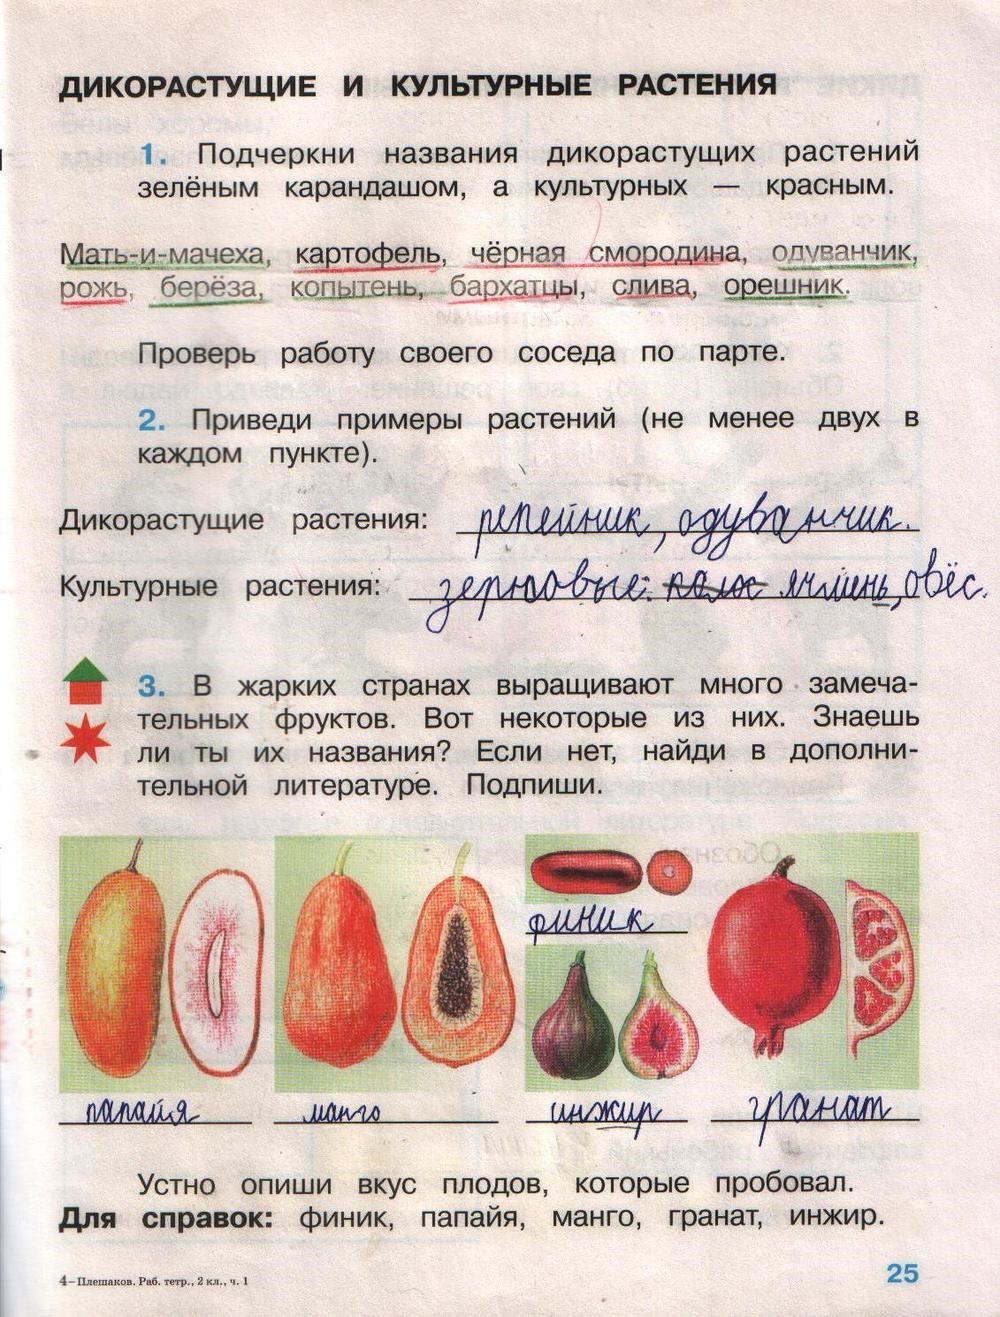 ДИКОРАСТУЩИЕ И КУЛЬТУРНЫЕ РАСТЕНИЯ
1. Подчеркни названия дикорастущих растений
зелёным карандашом, а культурных — красным.
Мать-и-мачеха, картофель, чёрная смородина, одуванчик,
рожь, берёза, копытень, бархатцы, слива, орешник.
Проверь работу своего соседа по парте.
2. Приведи примеры растений (не менее двух в
каждом пункте).
Дикорастущие растения: репейник, одуванчик.
Культурные растения: зерновые: ячмень, овёс.
3. В жарких странах выращивают много замеча-
тельных фруктов. Вот некоторые из них. Знаешь
ли ты их названия? Если нет, найди в дополни-
тельной литературе. Подпиши.
финик
папайя манго инжир гранат
Устно опиши вкус плодов, которые пробовал.
Для справок: финик, папайя, манго, гранат, инжир.
4–Плешаков. Раб. тетр., 2 кл., ч. 1
25